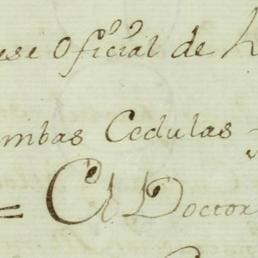 ese oficial de
mbas Cedulas
= El Doctor